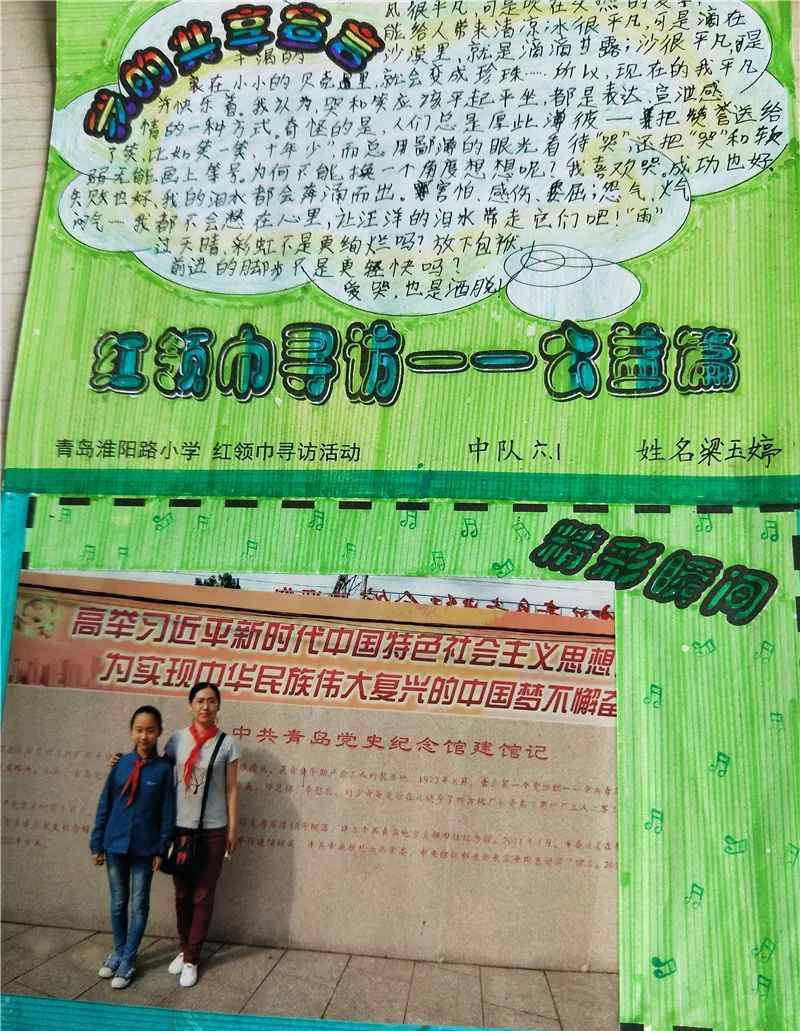 我的共享宣言
凡很平凡,可是吹在炎热的夏季
能给人带来清凉;冰很平凡,可是滴在
干渴的沙漠里,就是滴滴甘露;沙很平凡,可是
裹在小小的贝壳里,就会变成珍珠……所以,现在的我平凡
并快乐着。我认为,哭和笑应该平起平坐,都是表达、宣泄感
情的一种方式。奇怪的是,人们总是厚此薄彼——把赞誉送给
了笑,比如笑一笑,十年少"而总用鄙薄的眼光看待"哭",还把"哭"和软
弱无能画上等号。为何不能换一个角度想想呢?我喜欢哭。成功也好,
失败也好,我的泪水都会奔涌而出。害怕、感伤、委屈;怨气、火气
闷气——我都不会憋在心里,让汪洋的泪水带走它们吧!"雨"
过天晴,彩虹不是更绚烂吗?放下包袱,
前进的脚步不是更轻快吗?
爱哭,也是洒脱!
红领巾寻访——公益篇
青岛淮阳路小学 红领巾寻访活动 中队六.1 姓名梁玉婷
精彩瞬间
高举习近平新时代中国特色社会主义思想
为实现中华民族伟大复兴的中国梦不懈奋
中共青岛党史纪念馆建馆记